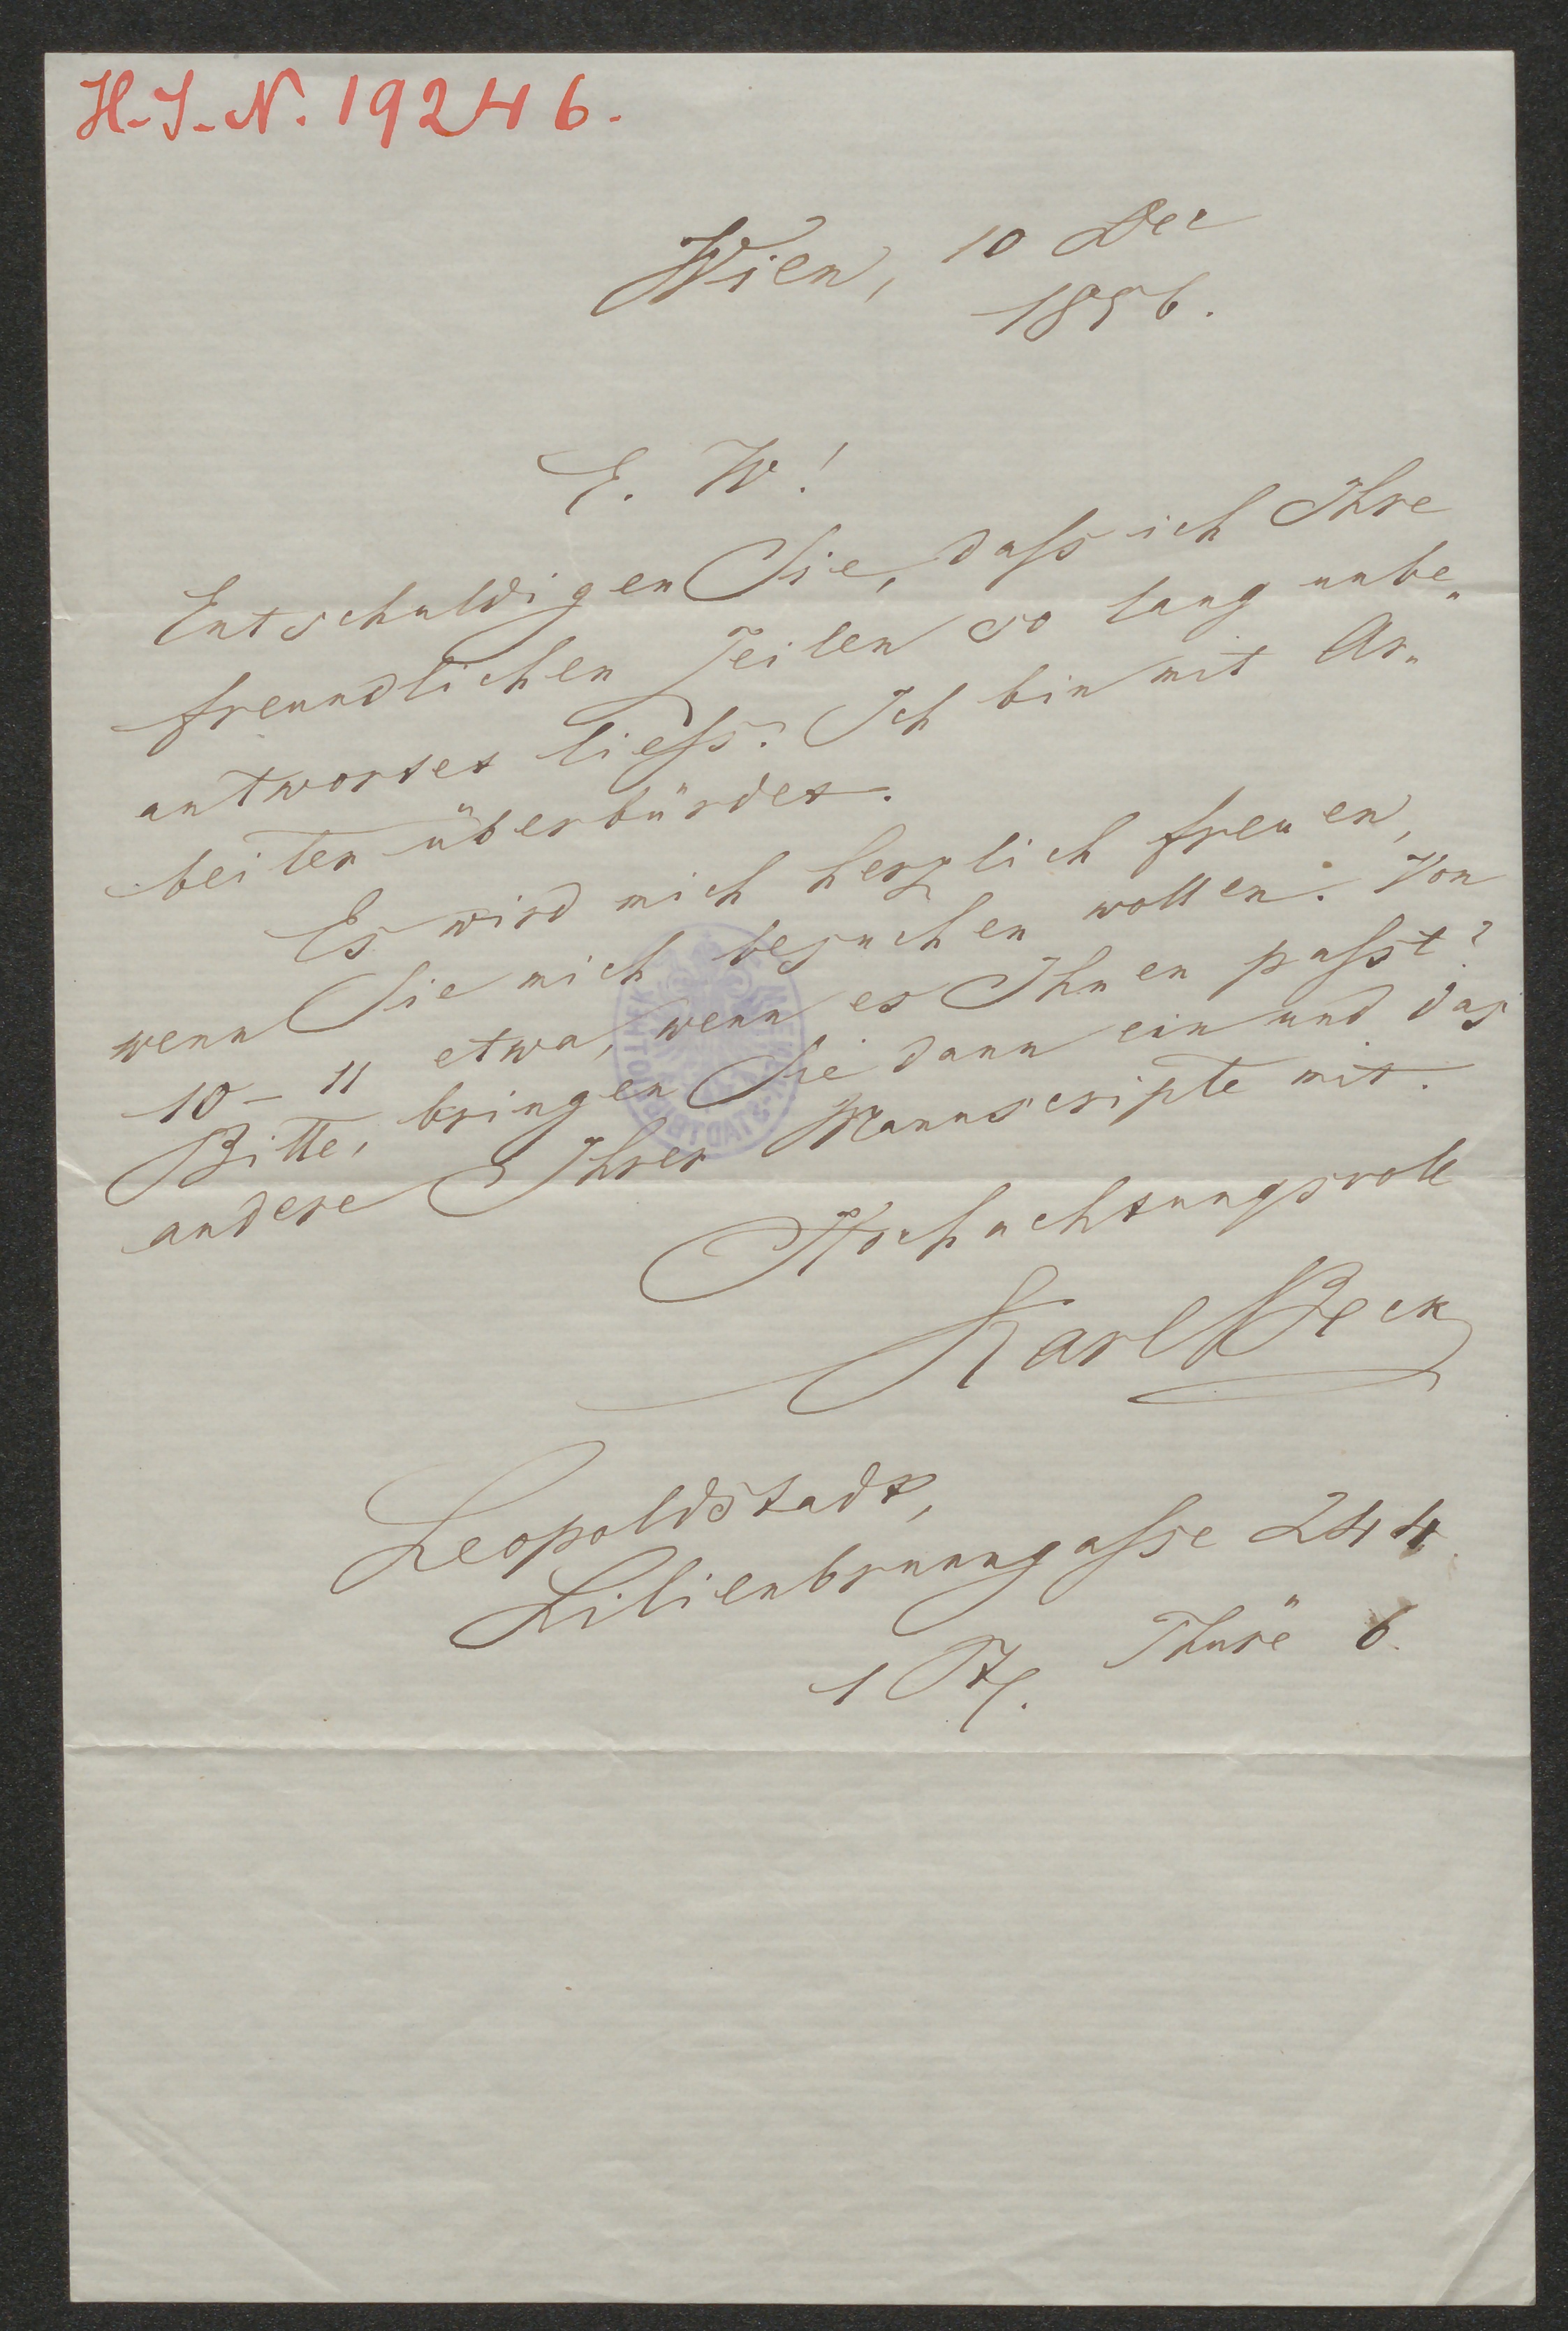 H.-I.-N. 19246.
Wien, 10 Dec
1856.
E. W.!
Entschuldigen Sie, dass ich Ihre
freundlichen Zeilen so lang unbe„
antwortet liess. Ich bin mit Ar„
beiten überbürdet.
Es wird mich herzlich freuen,
wenn Sie mich besuchen wollen. Von
10 – 11 etwa, wenn es Ihnen passt?
Bitte, bringen Sie dann ein und das
andere Ihrer Manuscripte mit.
Hochachtungsvoll
Karl Beck
Leopoldstadt,
Lilienbrunngasse 244
1 St. Thüre 6.